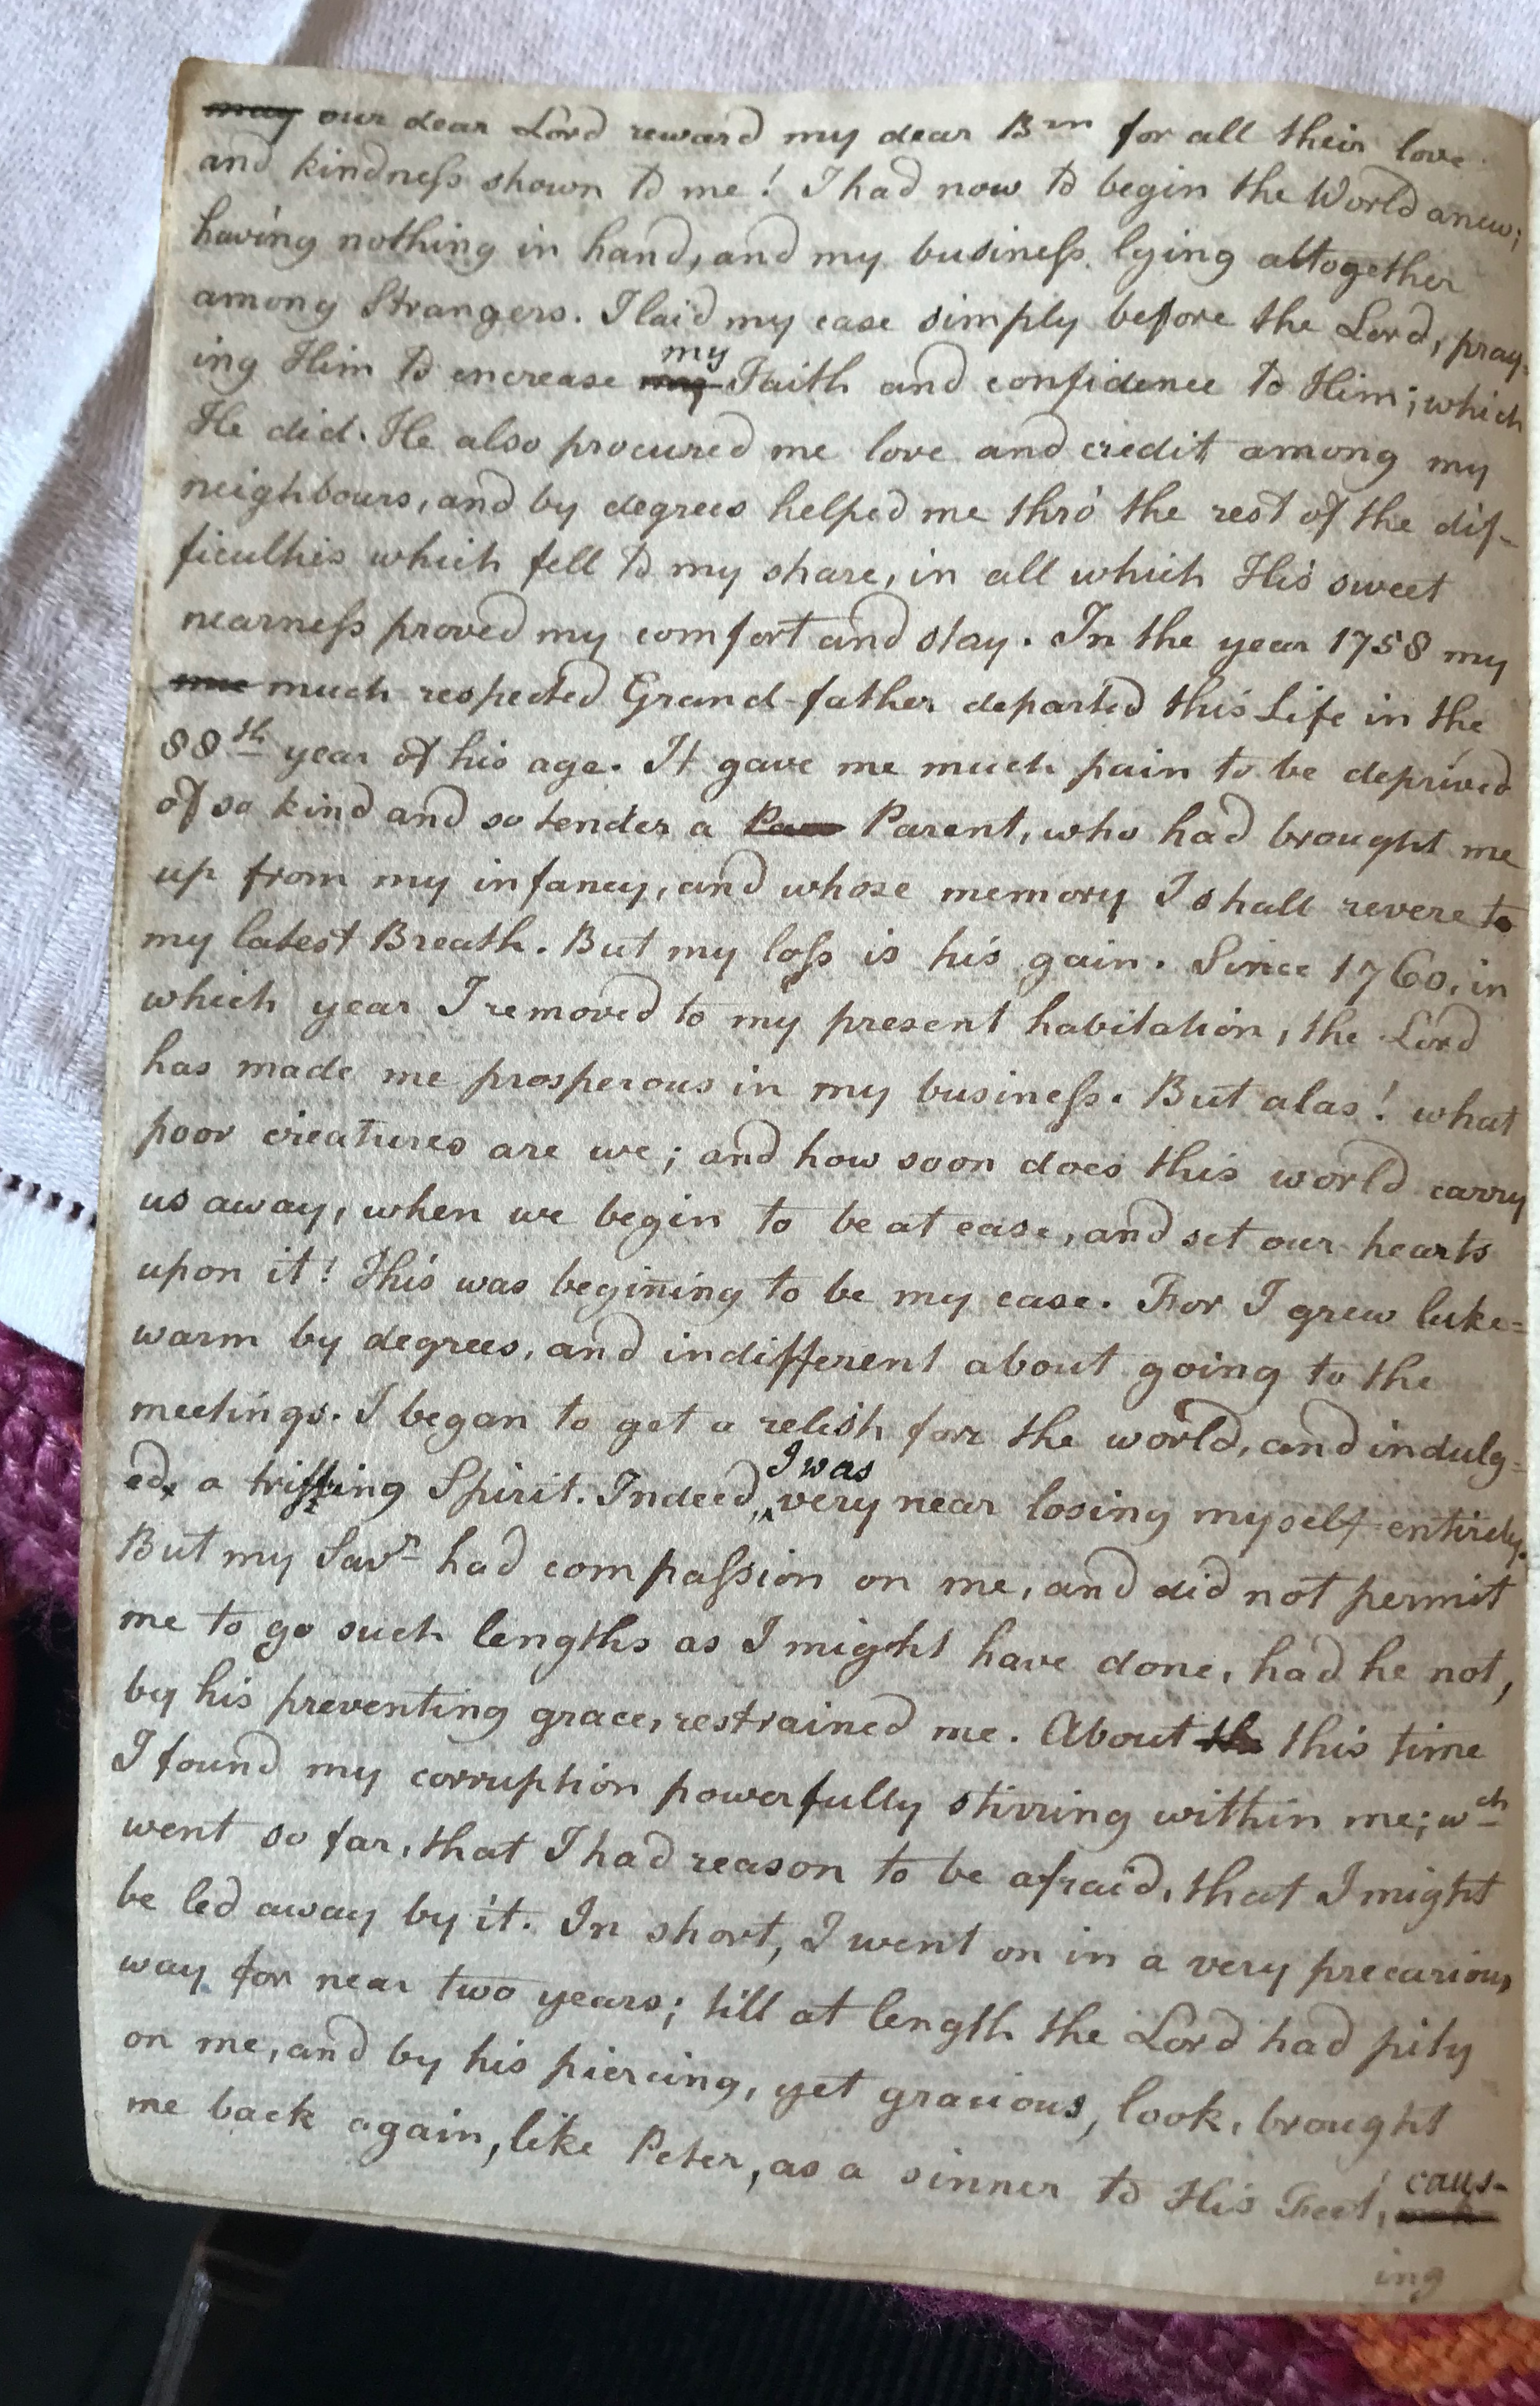 may our dear Lord reward my dear Brn for all their love
and kindness shown to me! I had now to begin the World anew;
having nothing in hand, and my business lying altogether
among Strangers. I laid my case simply before the Lord, pray-
ing Him to encrease my my Faith and confidence to Him; which
He did. He also procured me love and credit among my
neighbours, and by degrees helped me thro' the rest of the dif-
ficulties which fell to my share, in all which His sweet
nearness proved my comfort and stay. In the year 1758 my
muc much respected Grand-father departed this Life in the
88th year of his age. It gave me much pain to be deprived
of so kind and so tender a Pare Parent, who had brought me
up from my infancy, and whose memory I shall revere to
my latest Breath. But my loss is his gain. Since 1760, in
which year I removed to my present habitation, the Lord
has made me prosperous in my business. But alas! what
poor creatures are we; and how soon does this world carry
us away, when we begin to be at ease, and set our hearts
upon it! This was begining to be my case. For I grew luke=
warm by degrees, and indifferent about going to the
meetings. I began to get a relish for the world, and indulg=
ed, a trifling Spirit. Indeed, I was very near losing myself entirely.
But my Savr had compassion on me, and did not permit
me to go such lengths as I might have done, had he not,
by his preventing grace, restrained me. About th this time
I found my corruption powerfully stirring within me; wch
went so far, that I had reason to be afraid, that I might
be led away by it. In short, I went on in a very precarious
way for near two years; till at length the Lord had pity
on me, and by his piercing, yet gracious, look, brought
me back again, like Peter, as a sinner to His Feet, caus-
ing